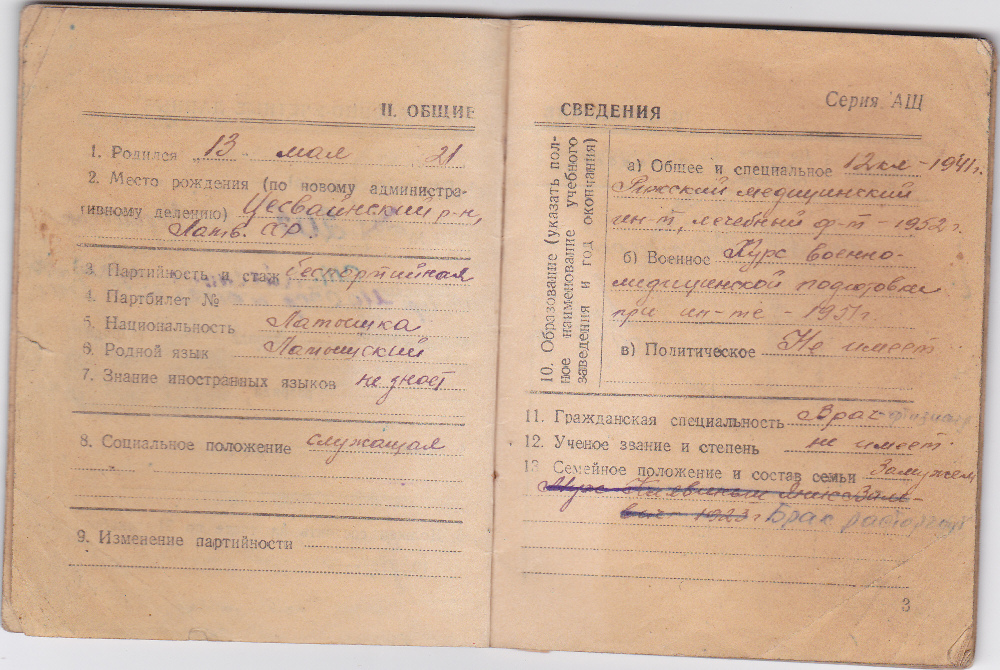 II. ОБЩИЕ
1. Родился 13 мая 21
2. Место рождения (по новому администра-
тивному делению) Цесвайнский р-н,
Латв. ССР.
3. Партийность и стаж беспартийная
4. Партбилет №
5. Национальность Латышка
6. Родной язык Латышский
7. Знание иностранных языков не знает
8. Социальное положение служащая
9. Изменение партийности
СВЕДЕНИЯ
Серия АЩ
10. Образование (указать пол-
ное наименование учебного
заведения и год окончания)
а) Общее и специальное 12 кл - 1941 г.
Рижский медицинский
ин-т, лечебный ф-т 1952 г.
б) Военное Курс военно-
медицинской подготовки
при ин-те - 1951 г.
в) Политическое Не имеет
11. Гражданская специальность Врач-
12. Ученое звание и степень не имеет
13. Семейное положение и состав семьи Замужем
Муж
1923 г Брак расторгнут
3